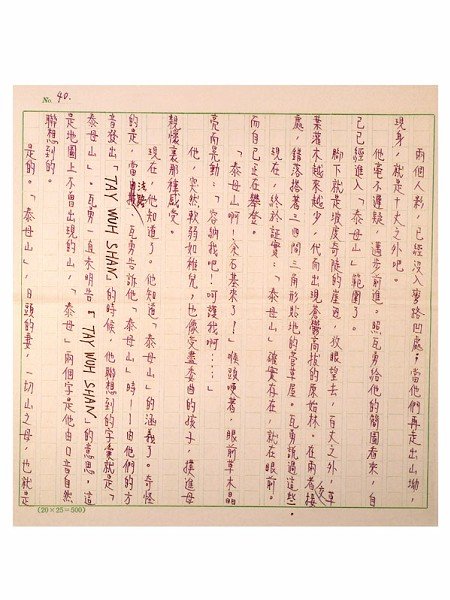 No. 40.
兩個人影，已經沒入彎路凹處；當他們再走出山坳，
現身，就是十丈之外吧。
他毫不遲疑，邁步前進。照瓦勇給他的簡圖看來，自
己已經進入「泰母山」範圍了。
腳下就是坡度奇陡的崖邊，放眼望去，百丈之外，草
葉灌木越來越少，代而出現蒼鬱高拔的原始林。在兩者接交
處，錯落搭著三四間三角形貼地的菅草屋。瓦勇說過這些。
現在，終於証實：「泰母山」確實存在，就在眼前。
而自己正在攀登。
「泰母山啊！余石基來了！」喉頭哽著，眼前草木晶
亮而晃動：「容納我吧！呵護我啊……」
他，突然軟弱如稚兒；也像受盡委曲的孩子，撲進母
親懷裏那種感受。
現在，他知道了。他知道「泰母山」的涵義了。奇怪
的是，當初瓦勇告訴他「泰母山」時——由他們的方
音發出「TAY WUH SHAN」的時候，他聯想到的字彙就是「
泰母山」。瓦勇一直未明告「TAY WUH SHAN」的意思。這
是地圖上不曾出現的山，「泰母」兩個字是他由口音自然
聯想到的。
是的。「泰母山」，日頭的妻，一切山之母，也就是
(20×25=500)